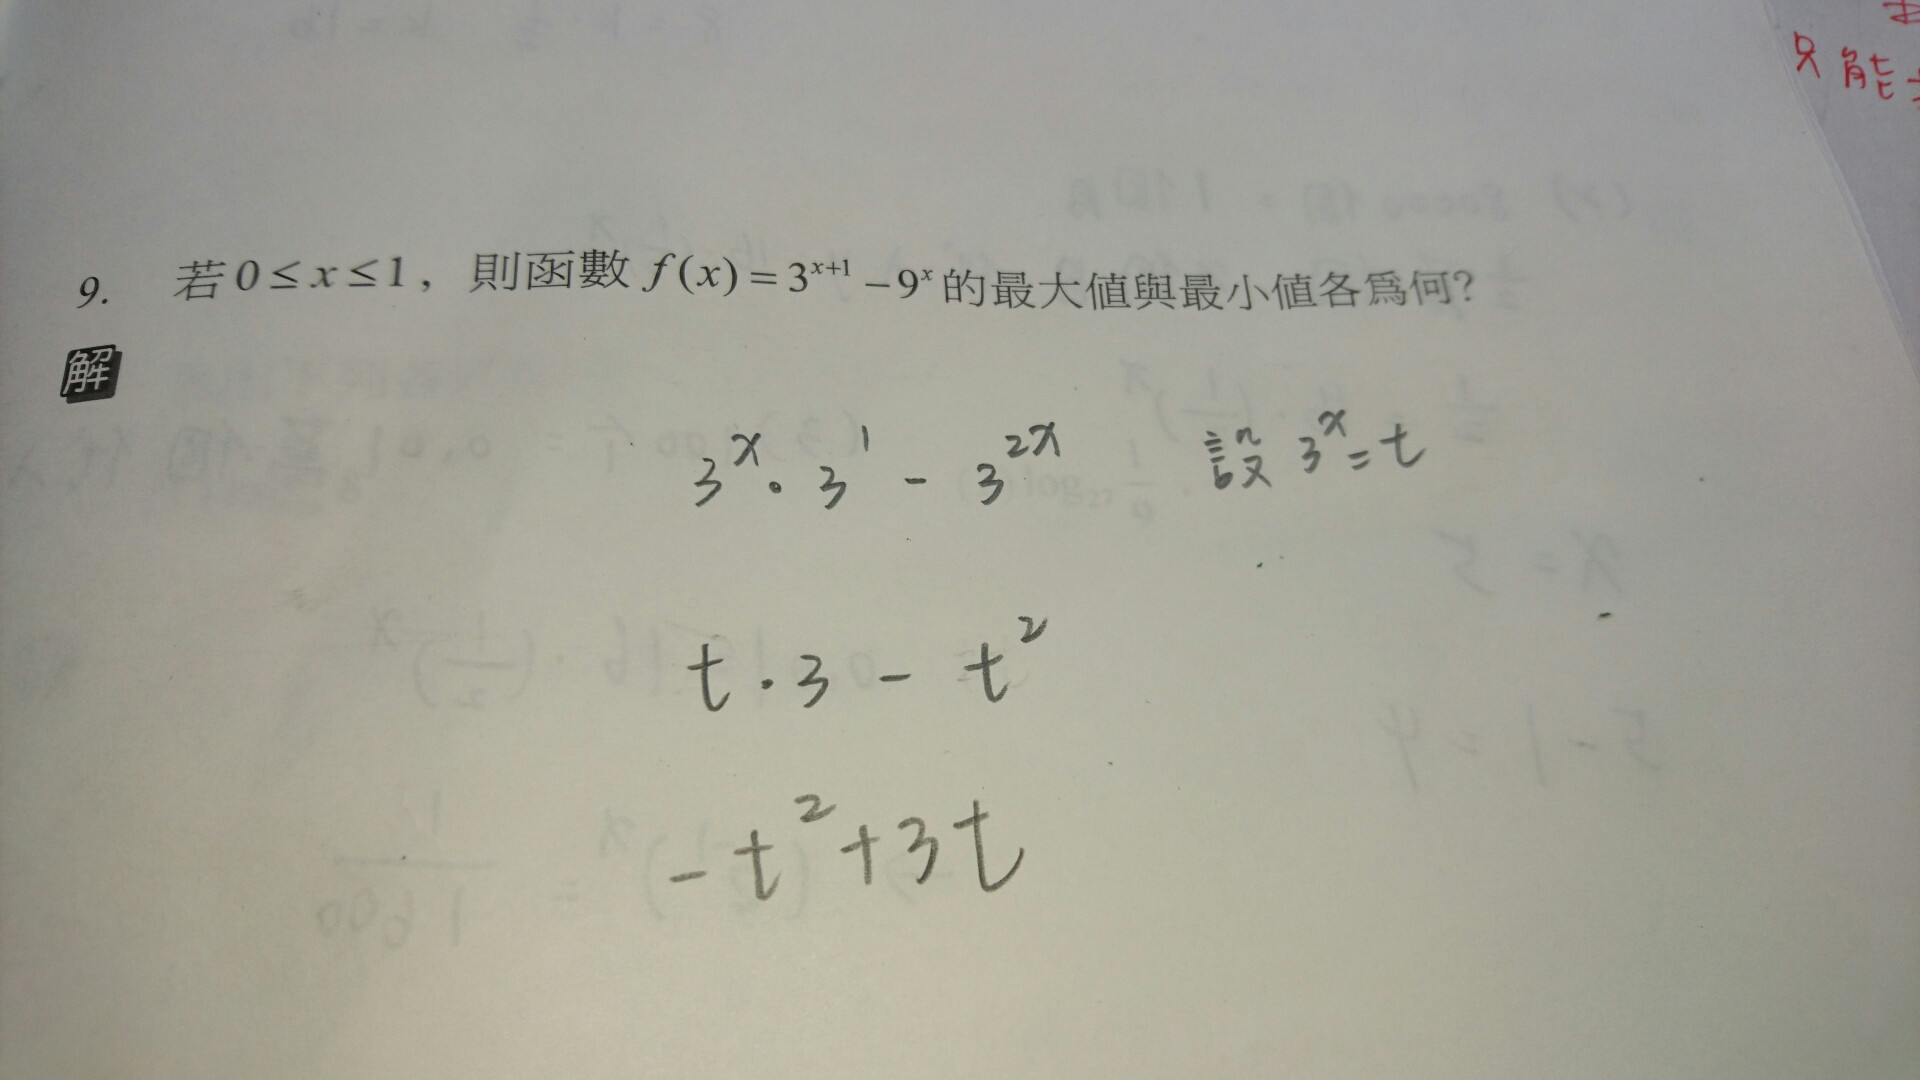 只能
9. 若 0 ≤ x ≤ 1，則函數 f(x) = 3^{x+1} − 9^x 的最大值與最小值各為何?
解
3^x · 3^1 - 3^{2x} 設 3^x = t
t · 3 - t^2
-t^2 + 3t